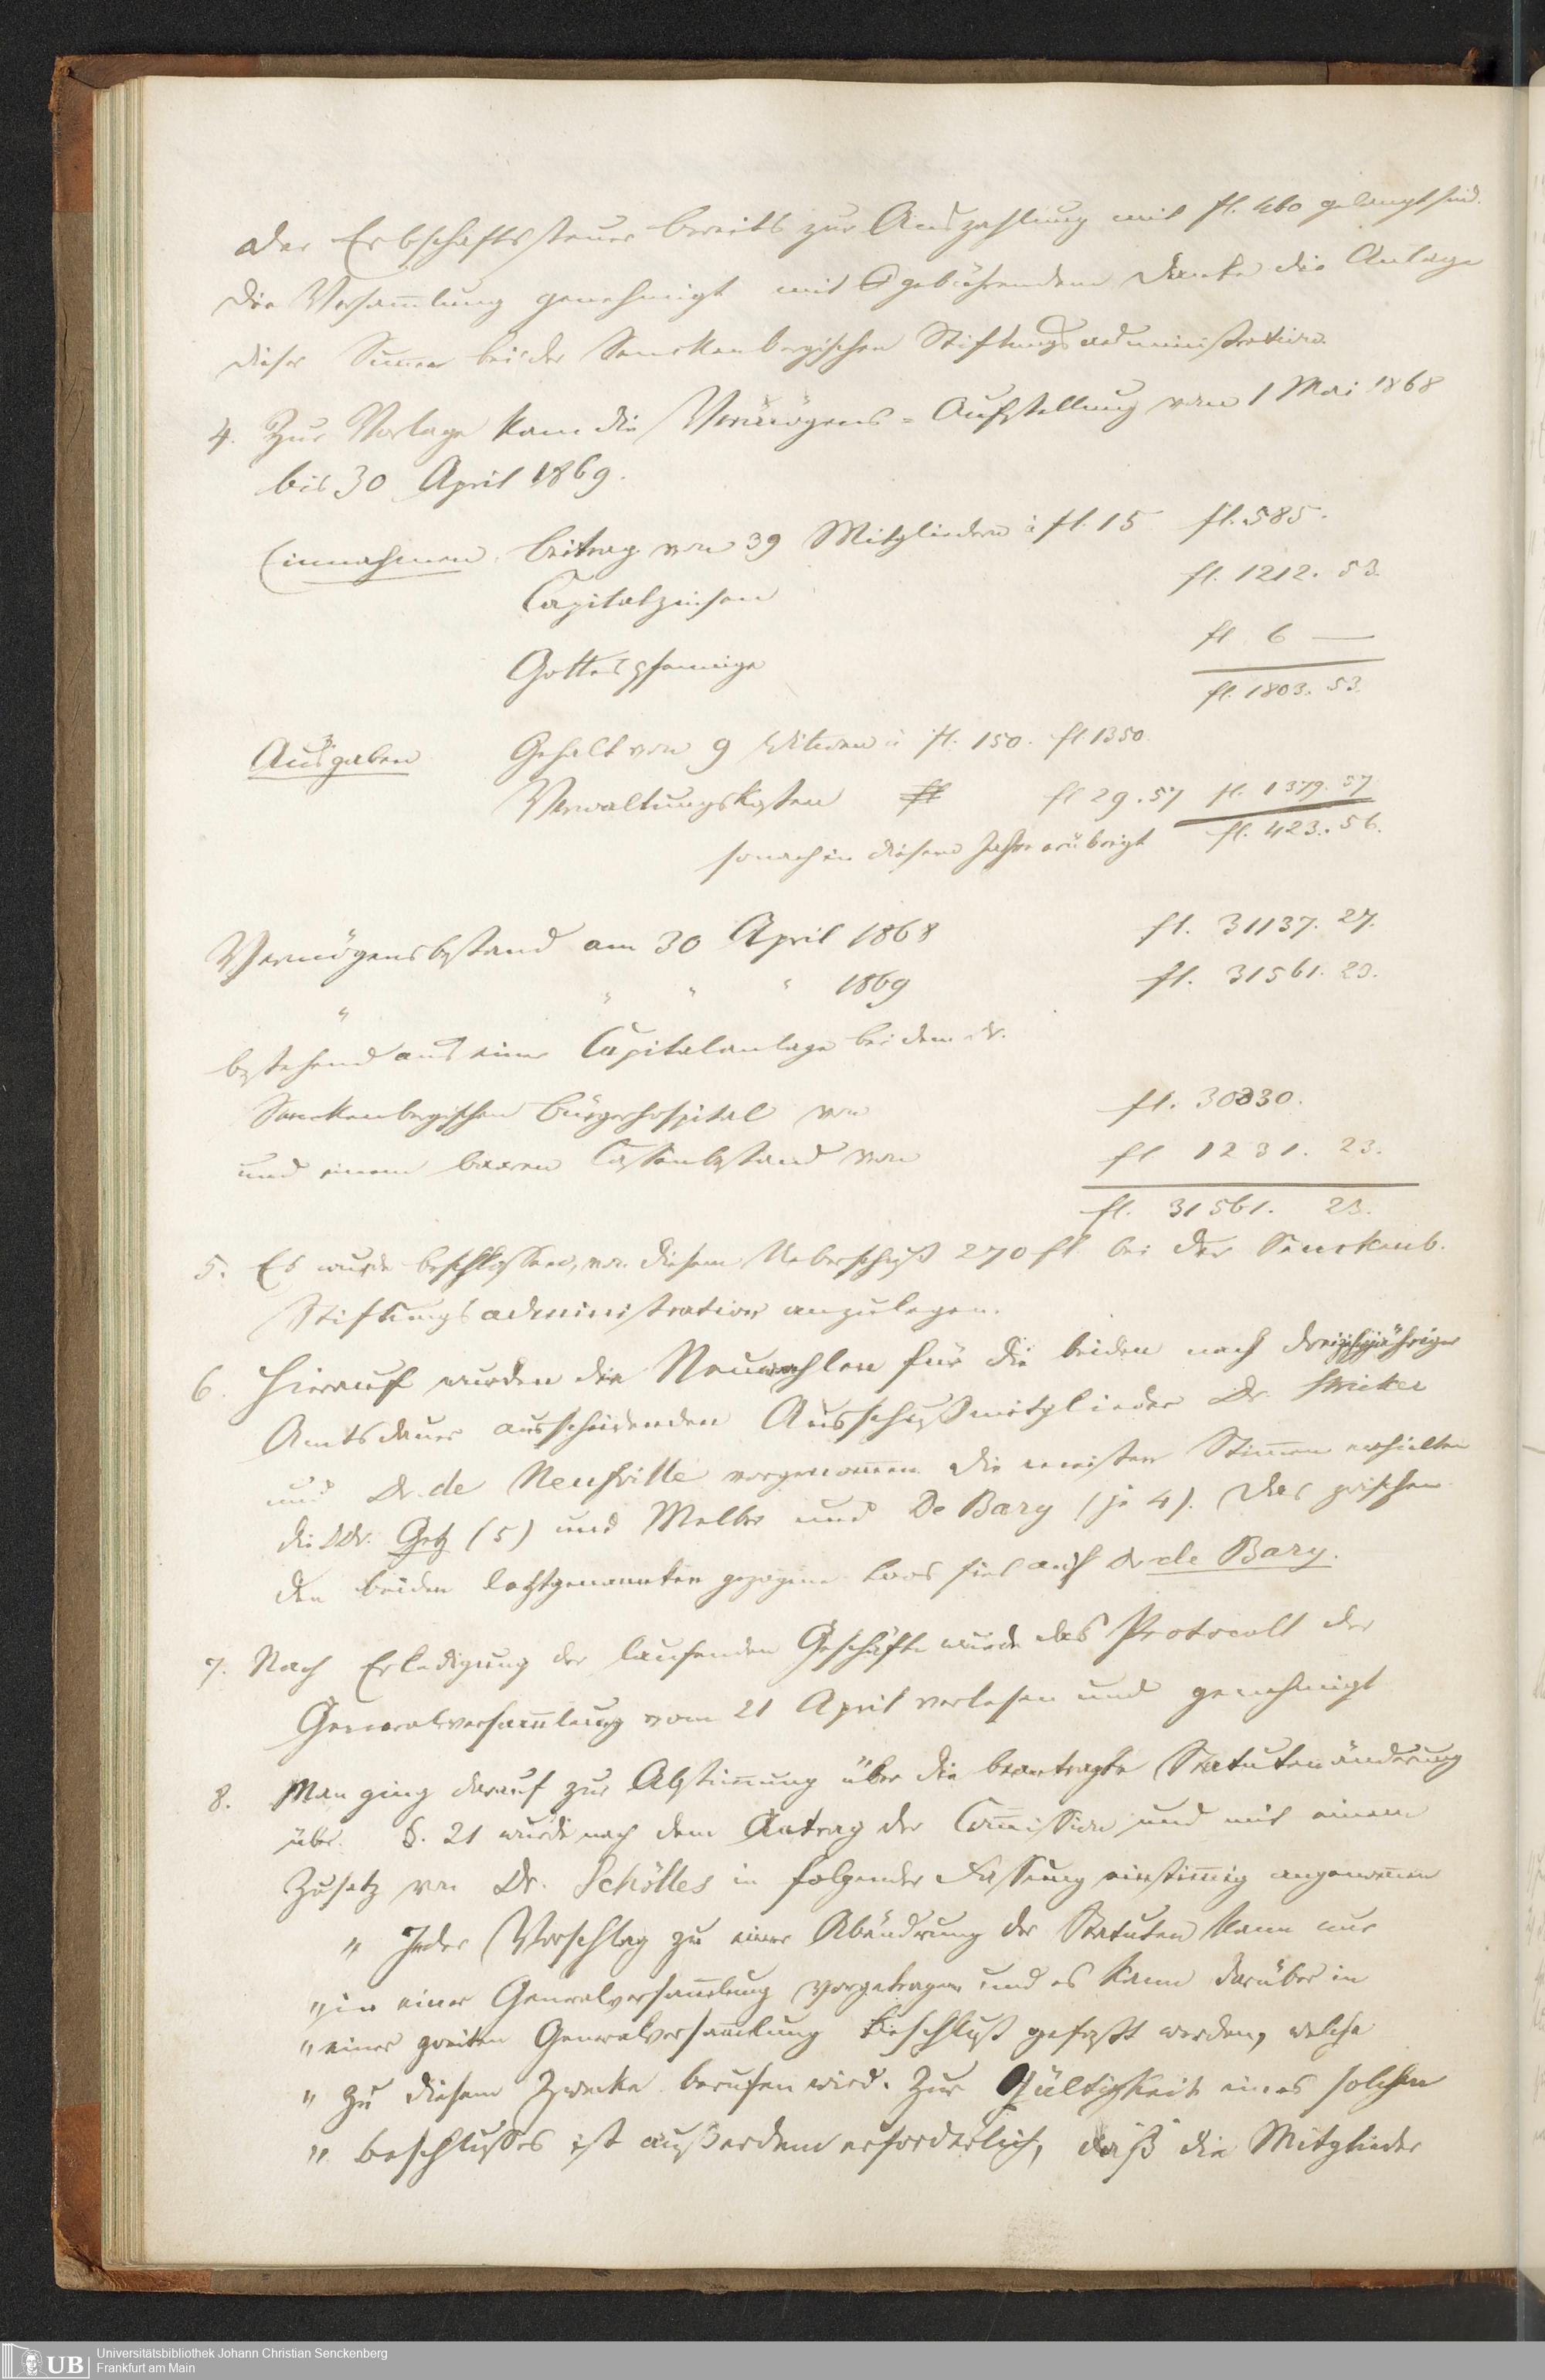 der Erbschaftssteuer bereits zur Auszahlung mit fl. 460 gelangt sind.
Die Versam̅lung genehmigt mit gebührendem Danke die Anlage
dieser Sum̅e bei der Senckenbergischen Stiftungsadministration.
4. Zur Vorlage kam die Vermögens-Aufstellung vom 1 Mai 1868
bis 30 April 1869.
Einnahmen. Beitrag von 39 Mitgliedern à fl. 15 fl. 585.
Capitalzinsen fl. 1212. 53.
Gottespfennige fl 6 —
fl. 1803. 53.
Ausgaben Gehalt von 9 Witwen à fl. 150. fl. 1350.
Verwaltungskosten fl 29. 57 fl. 1379. 57
sonach in diesem Jahre erübrigt fl. 423. 56.
Vermögensbestand am 30 April 1868 fl. 31137. 27.
" " " " 1869 fl. 31561. 23.
bestehend aus einer Capitalanlage bei dem Dr.
Senckenbergischen Bürgerhospital von fl. 30330.
und einem baaren Cassenbestand von fl 1231. 23.
fl. 31561. 23.
5. Es wurde beschlossen, von diesem Ueberschuß 270 fl. bei der Senckenb.
Stiftungsadministration anzulegen.
6. Hierauf wurden die Neuwahlen für die beiden nach dreijähriger
Amtsdauer ausscheidenden Ausschußmitglieder Dr. Stricker
und Dr. de Neufville vorgenom̅en. Die meisten Stim̅en erhielten
die DDr. Getz (5) und Melber und De Bary (je 4). Das zwischen
den beiden Letztgenannten gezogene Loos fiel auf Dr de Bary.
7. Nach Erledigung der laufenden Geschäfte wurde das Protocoll der
Generalversam̅lung vom 21 April verlesen und genehmigt
8. Man ging darauf zur Abstim̅ung über die beantragte Statutenänderung
über. §. 21 wurde nach dem Antrag der Com̅ission und mit einem
Zusatz von Dr. Schölles in folgender Fassung einstim̅ig angenom̅en
" Jeder Vorschlag zu einer Abändrung der Statuten kann nur
" in einer Generalversam̅lung vorgetragen und es kann darüber in
" einer zweiten Generalversam̅lung Beschluß gefaßt werden, welche
" zu diesem Zwecke berufen wird. Zur Gültigkeit eines solchen
" Beschlusses ist außerdem erforderlich, daß die Mitglieder
UB
Universitätsbibliothek Johann Christian Senckenberg
Frankfurt am Main